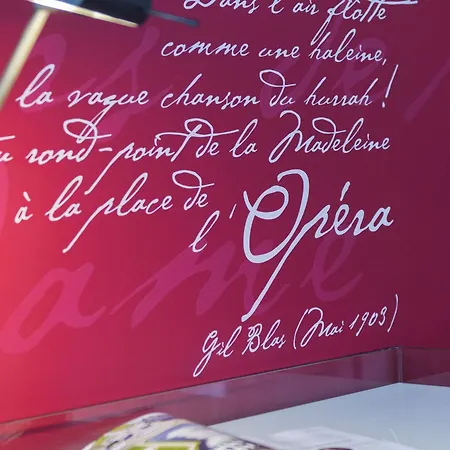 Dans l'air flotte
comme une haleine,
la vague chanson du hurrah!
rond-point de la Madeleine
à la place de
l'Opéra
Gil Blas (Mai 1903)